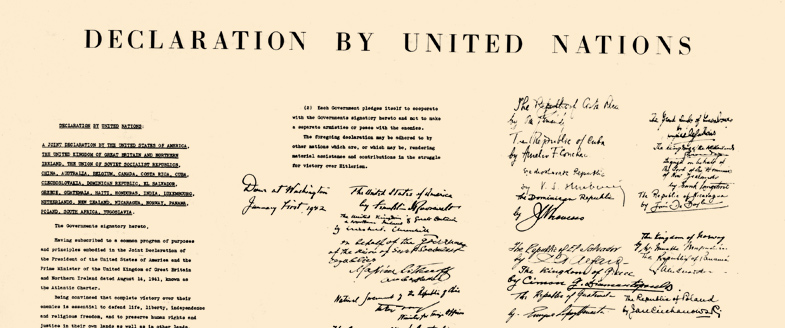 DECLARATION BY UNITED NATIONS
DECLARATION BY UNITED NATIONS:
A JOINT DECLARATION BY THE UNITED STATES OF AMERICA,
THE UNITED KINGDOM OF GREAT BRITAIN AND NORTHERN
IRELAND, THE UNION OF SOVIET SOCIALIST REPUBLICS,
CHINA, AUSTRALIA, BELGIUM, CANADA, COSTA RICA, CUBA,
CZECHOSLOVAKIA, DOMINICAN REPUBLIC, EL SALVADOR,
GREECE, GUATEMALA, HAITI, HONDURAS, INDIA, LUXEMBOURG,
NETHERLANDS, NEW ZEALAND, NICARAGUA, NORWAY, PANAMA,
POLAND, SOUTH AFRICA, YUGOSLAVIA.
The Governments signatory hereto,
Having subscribed to a common program of purposes
and principles embodied in the Joint Declaration of
the President of the United States of America and the
Prime Minister of the United Kingdom of Great Britain
and Northern Ireland dated August 14, 1941, known as
the Atlantic Charter.
Being convinced that complete victory over their
enemies is essential to defend life, liberty, independence
and religious freedom, and to preserve human rights and
justice in their own lands as well as in other lands
(2) Each Government pledges itself to cooperate
with the Governments signatory hereto and not to make
a separate armistice or peace with the enemies.
The foregoing declaration may be adhered to by
other nations which are, or which may be, rendering
material assistance and contributions in the struggle
for victory over Hitlerism.
Done at Washington
January First, 1942
The United States of America
by Franklin D Roosevelt
The United Kingdom of Great Britain
& Northern Ireland
by Winston Churchill
on behalf of the Government
of the Union of Soviet Socialist
Republics
Maxim Litvinoff
Ambassador
National Government of the Republic of China
Minister for Foreign Affairs
The Republic of Costa Rica
by
The Republic of Cuba
by Aurelio F Concheso
Czechoslovak Republic
by V. S. Hurban
The Dominican Republic
by
The Republic of El Salvador
by
The Kingdom of Greece
by Cimon
The Republic of Guatemala
by
The Grand Duchy of Luxembourg
by
The Republic of Nicaragua
by
The Kingdom of Norway
by
The Republic of Panama
by
The Republic of Poland
by Jan Ciechanowski